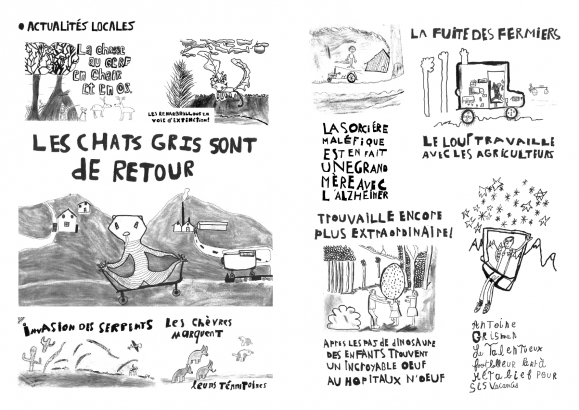 • ACTUALITÉS LOCALES
La chasse
au CERF
en chair
et en os.
LES CHATS GRIS SONT
DE RETOUR
INVASION DES SERPENTS
Les chèvres
marquent
leurs territoires
LA FUITE DES FERMIERS
LA SORCIÈRE
MALÉFIQUE
EST EN FAIT
UNE GRAND
MÈRE AVEC
L'ALZHEIMER
LE LOUP TRAVAILLE
AVEC LES AGRICULTEURS
TROUVAILLE ENCORE
PLUS EXTRAORDINAIRE!
APRES LES PAS DE DINOSAURE
DES ENFANTS TROUVENT
UN INCROYABLE OEUF
AU HOPITAUX N'OEUF
Antoine
Le Talentueux
footballeur
pour
ses vacances